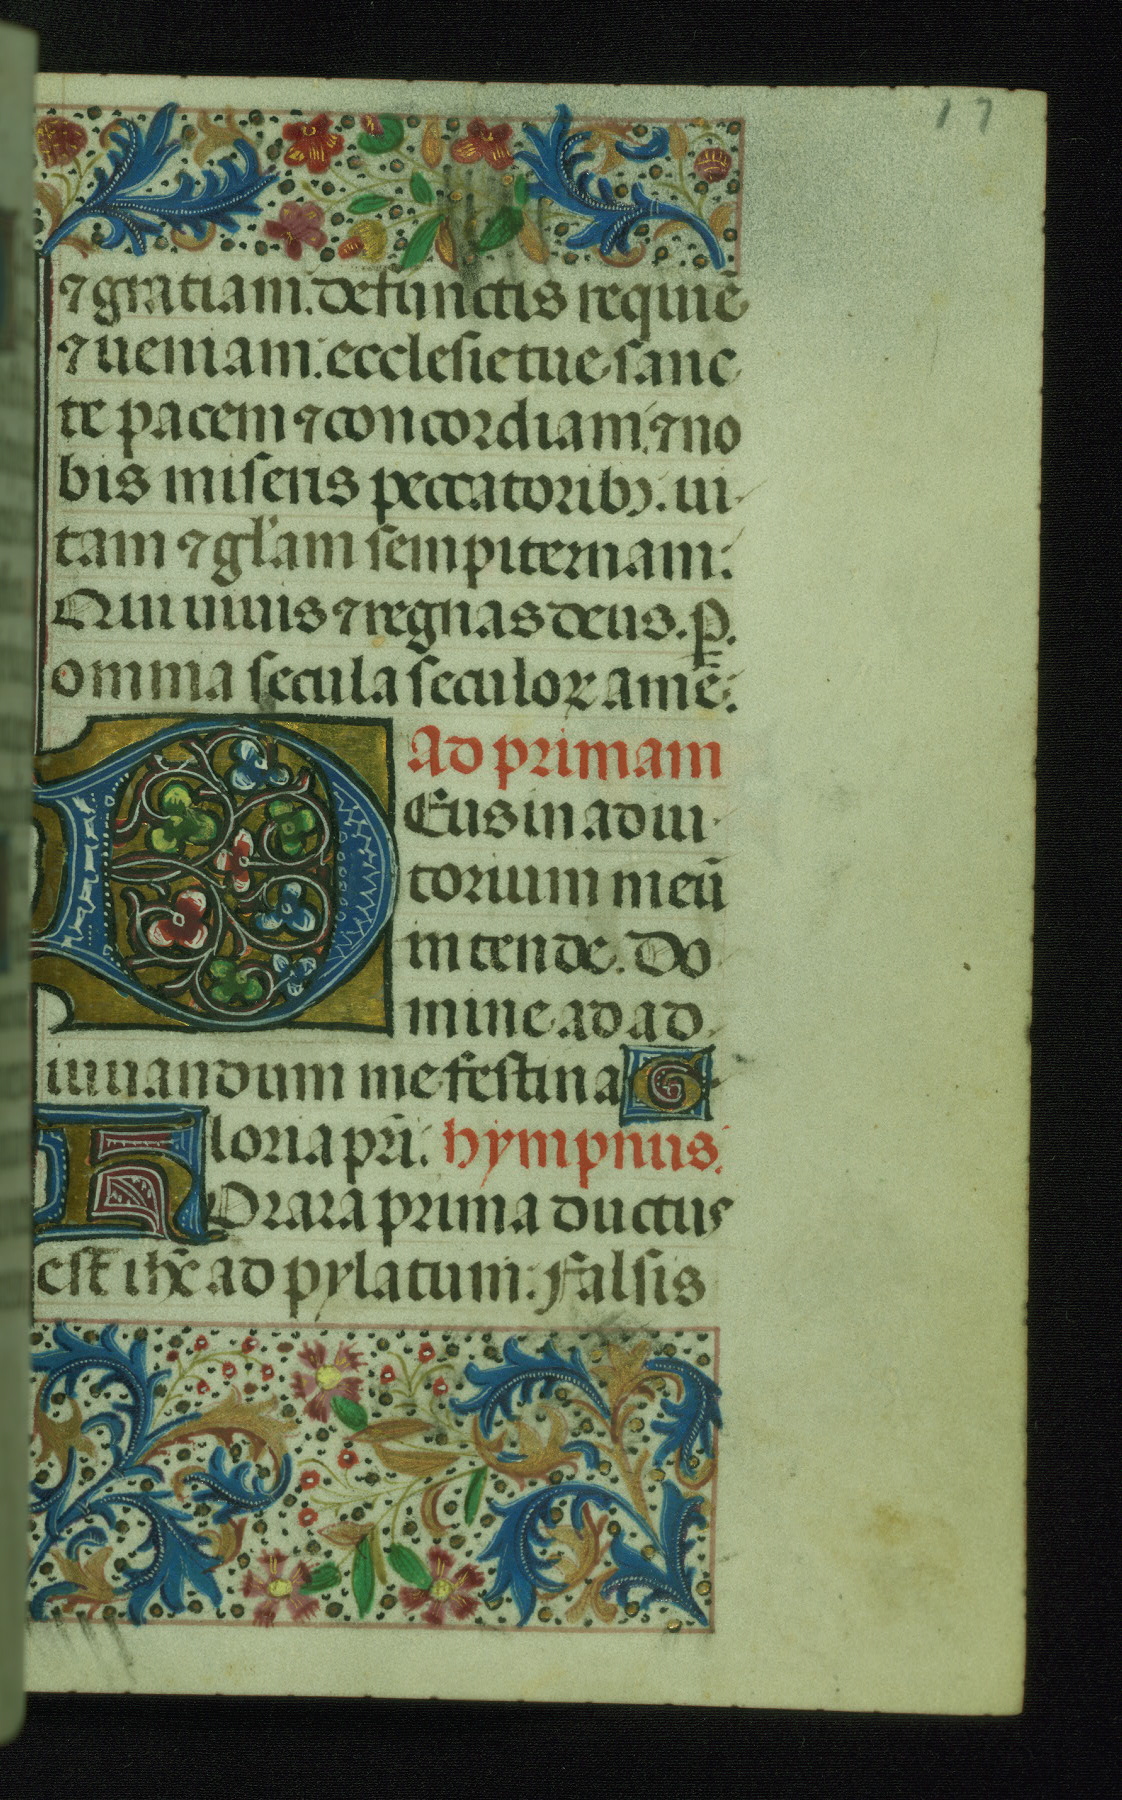 17
⁊ gratiam. defunctis requiē
⁊ ueniam: ecclesie tue sanc
te pacem ⁊ concordiam: ⁊ no
bis miseris peccatoribꝫ. ui
tam ⁊ gl'am sempiternam:
Qui uiuis ⁊ regnas deus. p̲.
omnia secula seculoꝝ amē:
Ad primam
D Eus in adiu
torium meū
intende. Do
mine ad ad
iuuandum me festina G
loria pr̄i. hympnus.
H Ora ra prima ductus
est ih̄c ad pylatum: Falsis